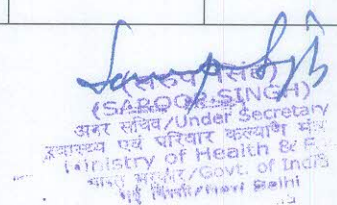 (SAROOP SINGH)
अवर सचिव/Under Secretary
स्वास्थ्य एवं परिवार कल्याण
Ministry of Health & F.
भारत सरकार/Govt. of India
नई दिल्ली/New Delhi